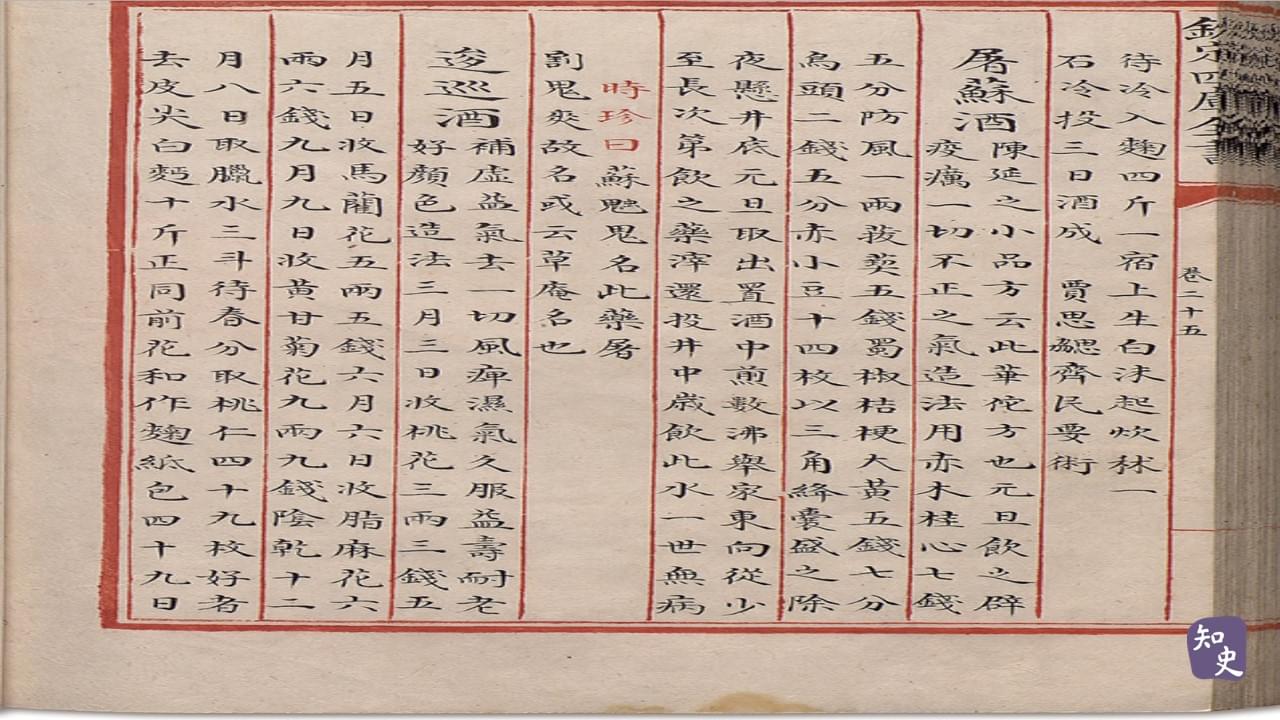 欽定四庫全書
卷二十五
待冷入麴四斤一宿上生白沫起炊秫一
石冷投三日酒成　賈思勰齊民要術
屠蘇酒
陳延之小品方云此華佗方也元旦飲之辟
疫癘一切不正之氣造法用赤木桂心七錢
五分防風一兩菝葜五錢蜀椒桔梗大黃五錢七分
烏頭二錢五分赤小豆十四枚以三角絳囊盛之除
夜懸井底元旦取出置酒中煎數沸舉家東向從少
至長次第飲之藥滓還投井中歲飲此水一世無病
時珍曰蘇魅鬼名此藥屠
割鬼爽故名或云草庵名也
逡巡酒
補虛益氣去一切風痺濕氣久服益壽耐老
好顏色造法三月三日收桃花三兩三錢五
月五日收馬藺花五兩五錢六月六日收脂麻花六
兩六錢九月九日收黃甘菊花九兩九錢陰乾十二
月八日取臘水三斗待春分取桃仁四十九枚好者
去皮尖白麪十斤正同前花和作麴紙包四十九日
知史